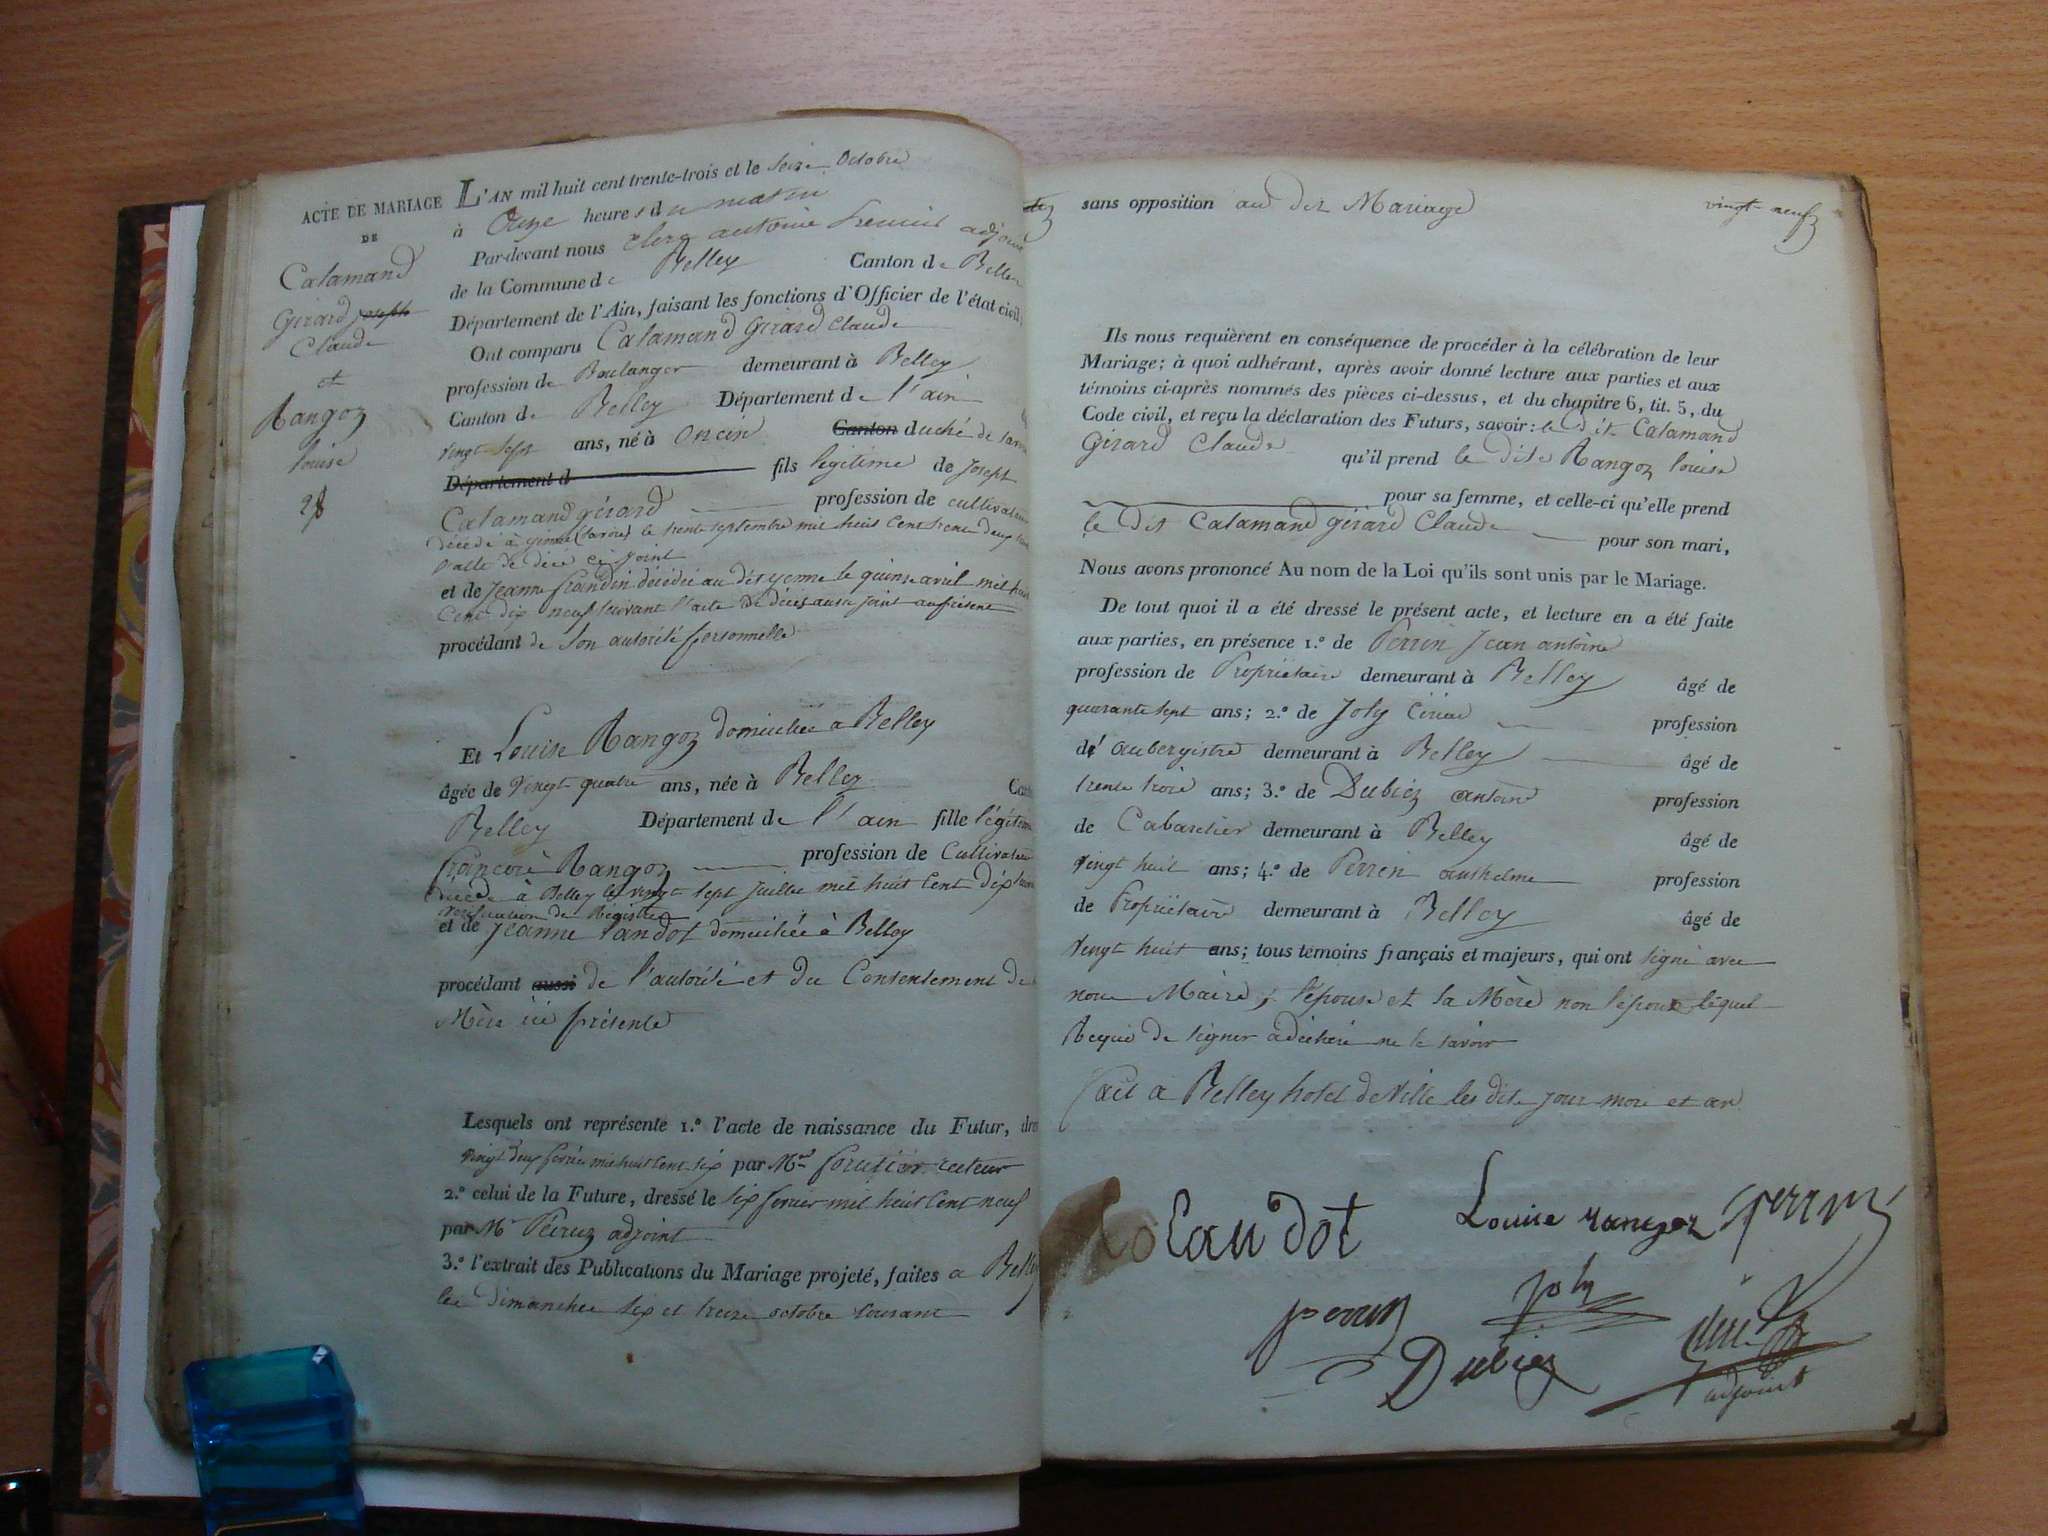 ACTE DE MARIAGE
DE
Calamand
Girard Joseph
Claude
et
Rangoz
louise
28
L'AN mil huit cent trente-trois et le seize Octobre
à Onze heures du matin
Par-devant nous clerc antoine adjoint
de la Commune de Belley Canton de Belley
Département de l'Ain, faisant les fonctions d'Officier de l'état civil,
Ont comparu Calamand Girard Claude
profession de Boulanger demeurant à Belley
Canton de Belley Département de l'ain
vingt sept ans, né à Oncin Canton duché de savoie
Département d fils légitime de Joseph
Calamand girard profession de cultivateur
décédé à yenne (savoie) le trente septembre mil huit cent trente deux
l'acte de décé ci joint
et de Jeanne décédée au dit yenne le quinze avril mil huit
cent dix neuf suivant l'acte de décès aussi joint au présent
procédant de son autorité personnelle
Et Louise Rangoz domiciliée à Belley
âgée de vingt quatre ans, née à Belley
Belley Département de l'ain fille légitime
françois Rangoz profession de Cultivateur
décédé à Belley le vingt sept juillet mil huit cent
vérification de Régistre
et de Jeanne landot domiciliée à Belley
procédant aussi de l'autorité et du Consentement de
Mère ici présente
Lesquels ont représenté 1.° l'acte de naissance du Futur,
vingt deux février mil huit cent six par M. recteur
2.° celui de la Future, dressé le six février mil huit cent neuf
par M. adjoint
3.° l'extrait des Publications du Mariage projeté, faites à Belley
les dimanches six et treize octobre courant
sans opposition au dit Mariage
vingt-neuf
Ils nous requièrent en conséquence de procéder à la célébration de leur
Mariage; à quoi adhérant, après avoir donné lecture aux parties et aux
témoins ci-après nommés des pièces ci-dessus, et du chapitre 6, tit. 5, du
Code civil, et reçu la déclaration des Futurs, savoir: le dit Calamand
Girard Claude qu'il prend la dite Rangoz louise
pour sa femme, et celle-ci qu'elle prend
le dit Calamand girard Claude pour son mari,
Nous avons prononcé Au nom de la Loi qu'ils sont unis par le Mariage.
De tout quoi il a été dressé le présent acte, et lecture en a été faite
aux parties, en présence 1.° de Perrin Jean antoine
profession de Propriétaire demeurant à Belley âgé de
quarante sept ans; 2.° de Joly profession
d' aubergiste demeurant à Belley âgé de
trente trois ans; 3.° de Dubiez antoine profession
de Cabaretier demeurant à Belley âgé de
vingt huit ans; 4.° de Perrin anthelme profession
de Propriétaire demeurant à Belley âgé de
vingt huit ans; tous témoins français et majeurs, qui ont signé avec
nous Maire, l'épouse et la Mère non l'époux lequel
Requis de signer a déclaré ne le savoir
fait à Belley hotel de Ville les dits jour mois et an
landot
Louise rangoz
perrin
perrin
joly
Dubiez
adjoint